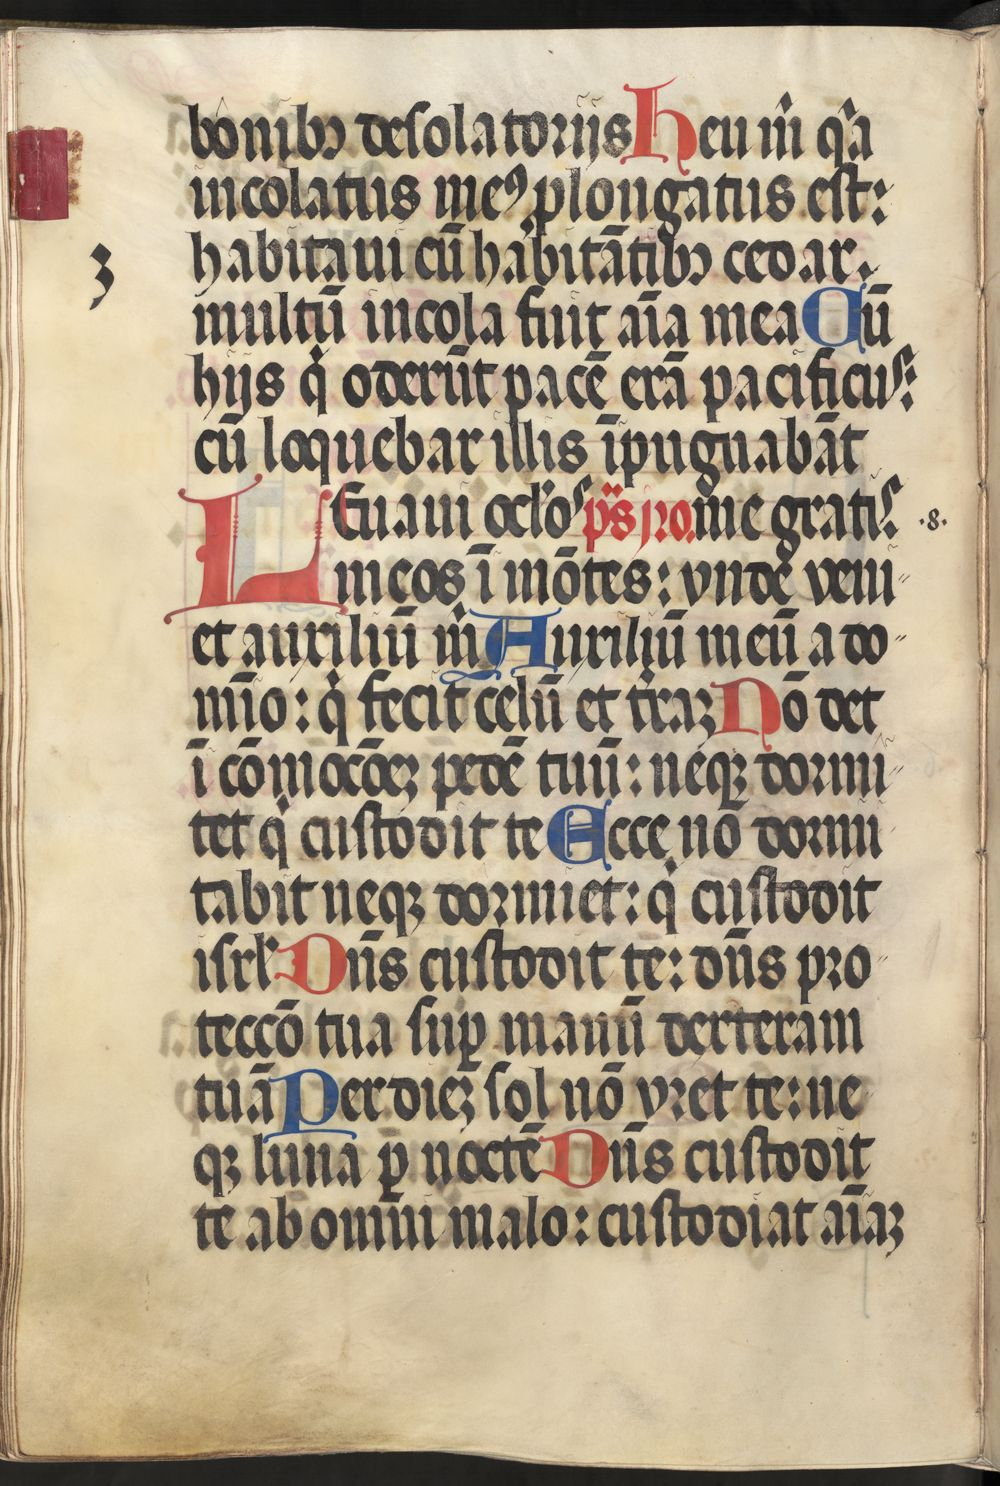 bonibꝫ desolatorijs Heu m̄ qͣa
incolatus meꝰ ꝓlongatus est:
3
habitaui cū habitātibꝫ cedar.
multū incola fuit aīa mea Cū
hijs q̇ oderūt pacē erā pacificus:
cū loquebar illis īpugnabāt
me gratis
Leuaui oclōs p̄s j20.
meos ī mōtes: vnde veni-
et auxiliū m̄ Auxiliū meū a do-
mīo: q̇ fecit celū et tr̄aꝫ Nō det
ī cōmocōeꝫ pedē tuū: neqꝫ dormi-
tet q̇ custodit te Ecce nō dormi
tabit neqꝫ dormiet: q̇ custodit
isrl̄ Dn̄s custodit te: dn̄s pro-
teccō tua suꝑ manū dexteram
tuā Per dieꝫ sol nō vret te: ne
qꝫ luna ꝑ noctē Dn̄s custodit
te ab omni malo: custodiat aīaꝫ
·8·